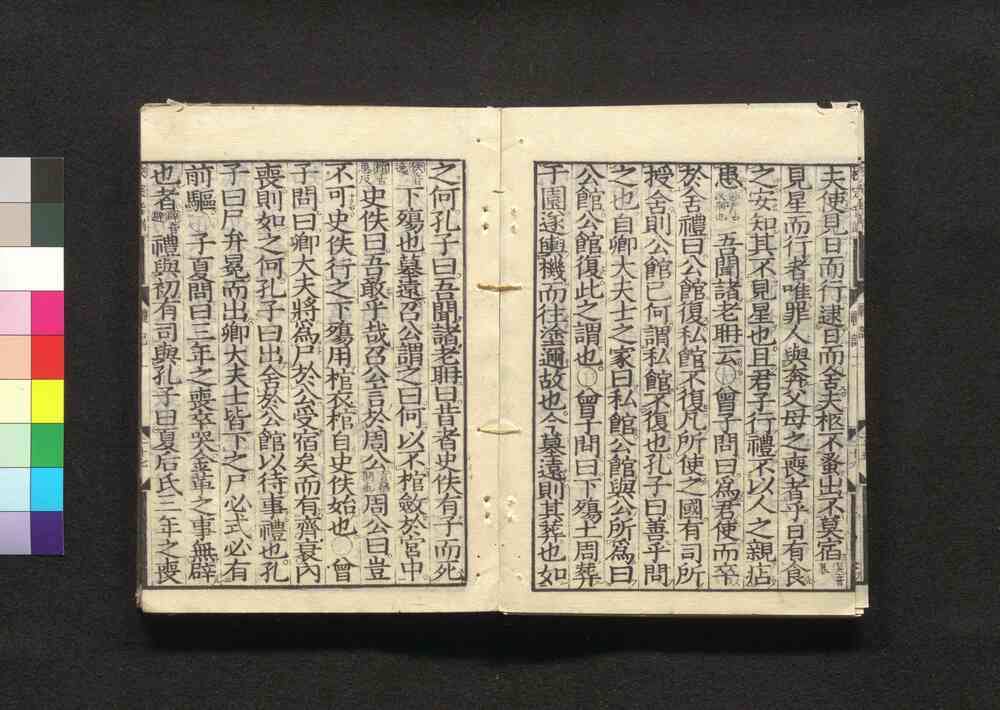 夫使見日而行逮日而舍夫柩不蚤出不莫宿
見星而行者唯罪人與奔父母之喪者乎日有食
之安知其不見星也且君子行禮不以人之親痁
患吾聞諸老耼云曾子問曰爲君使而卒
於舍禮曰公館復私館不復凡所使之國有司所
授舍則公館已何謂私館不復也孔子曰善乎問
之也自卿大夫士之家曰私館公館與公所爲曰
公館公館復此之謂也曾子問曰下殤土周葬
于園遂輿機而往塗邇故也今墓遠則其葬也如
之何孔子曰吾聞諸老耼曰昔者史佚有子而死
下殤也墓遠召公謂之曰何以不棺斂於宮中
史佚曰吾敢乎哉召公言於周公周公曰豈
不可史佚行之下殤用棺衣棺自史佚始也曾
子問曰卿大夫將爲尸於公受宿矣而有齊衰內
喪則如之何孔子曰出舍於公館以待事禮也孔
子曰尸弁冕而出卿大夫士皆下之尸必式必有
前驅子夏問曰三年之喪卒哭金革之事無辟
也者禮與初有司與孔子曰夏后氏三年之喪